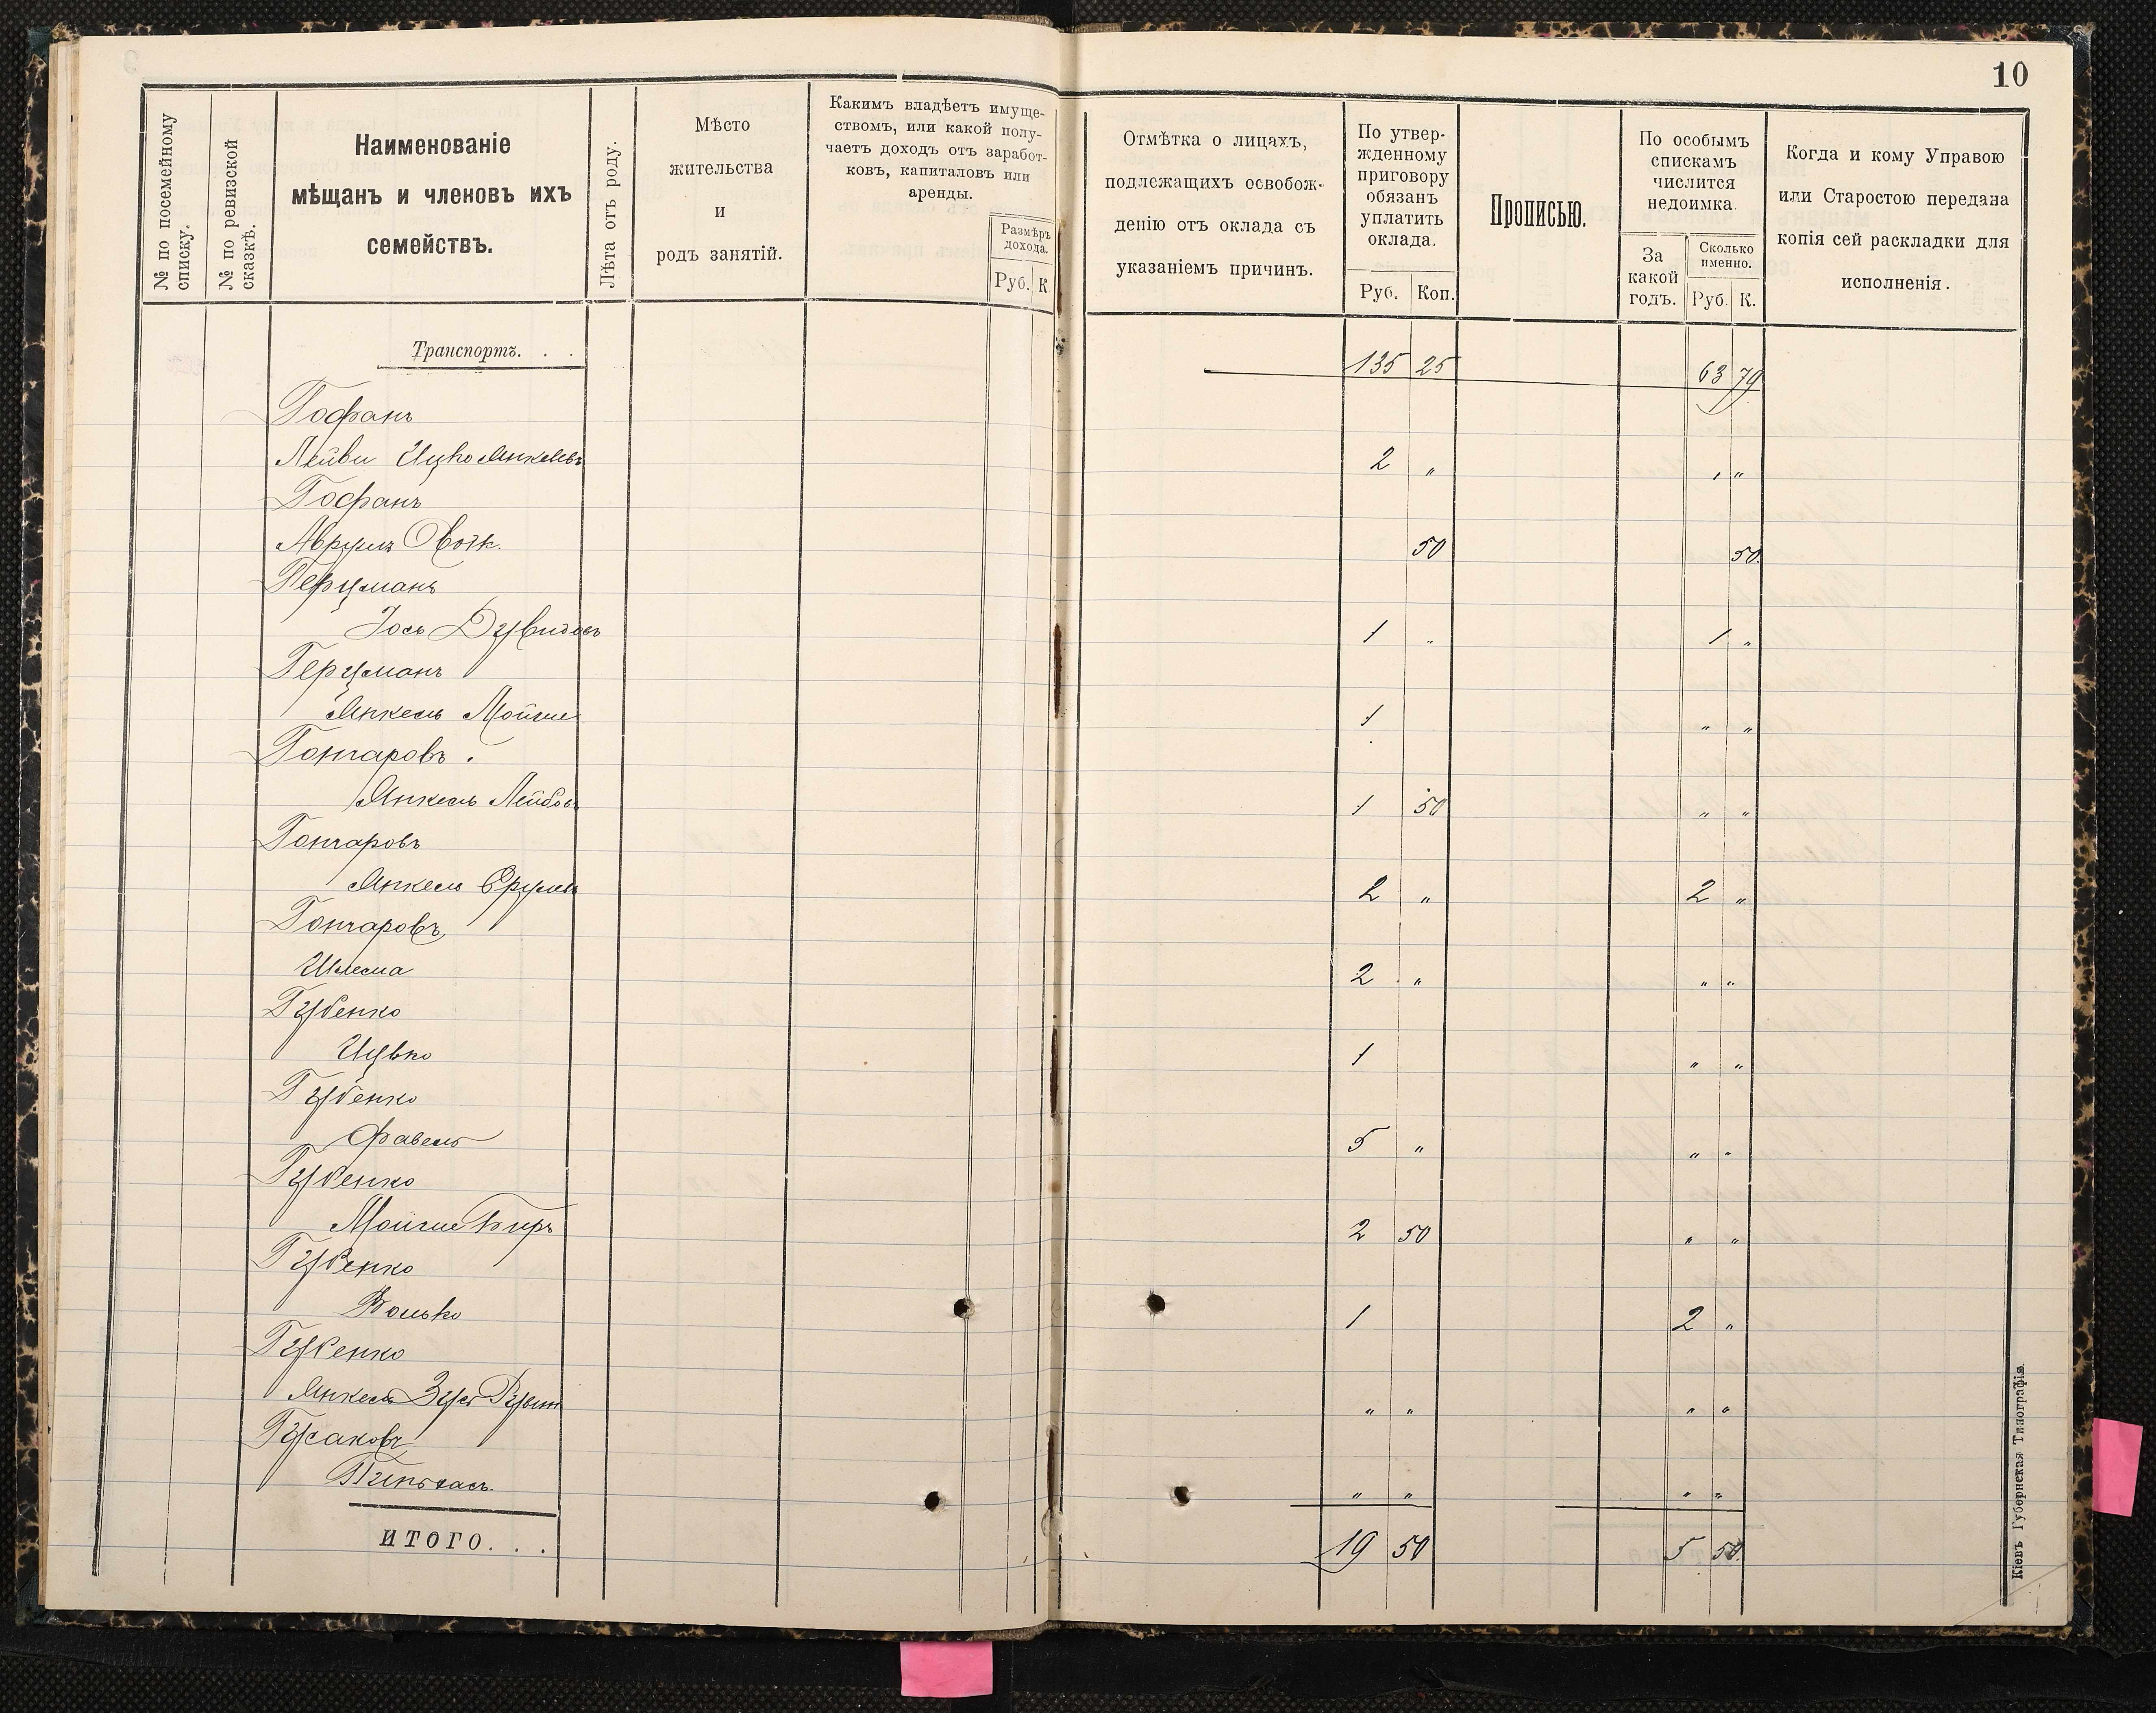 10
№ по посемейному списку.
№ по ревизской сказкѣ.
Наименованіе
мѣщанъ и членовъ ихъ
семействъ.
Лѣта отъ роду.
Мѣсто
жительства
и
родъ занятій.
Какимъ владѣетъ имуще-
ствомъ, или какой полу-
чаетъ доходъ отъ заработ-
ковъ, капиталовъ или
аренды.
Размѣръ
дохода.
Руб. К
Отмѣтка о лицахъ,
подлежащихъ освобож-
денію отъ оклада съ
указаніемъ причинъ.
По утвер-
жденному
приговору
обязанъ
уплатить
оклада.
Руб. Коп.
Прописью.
По особымъ
спискамъ
числится
недоимка.
За
какой
годъ.
Сколько
именно.
Руб. К.
Когда и кому Управою
или Старостою передана
копія сей раскладки для
исполненія.
Транспортъ. . . 135 25 63 79
Гофанъ
Лейви Ицко Янкелевъ 2 " " "
Гофанъ
Аврумъ 50 50
Герцманъ
Іось Дувидовъ 1 " 1 "
Герцманъ
Янкель Мойше 1 " "
Гончаровъ.
Янкель Лейбовъ 1 50 " "
Гончаровъ
Янкель Срулев 2 " 2 "
Гончаровъ
Шлема 2 " " "
Губенко
Ицько 1 " "
Губенко
Фавель 5 " " "
Губенко
Мойше Беръ 2 50 " "
Губенко
Волько 1 2 "
Губенко
Янкель Зусь " " " "
Гусаковъ
Пиньхасъ. " " " "
ИТОГО. . . 19 50 5 50
Кіевъ Губернская Типографія.